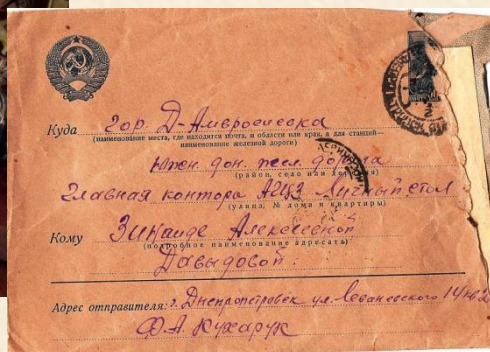 Куда гор. Д-Амвросиевка
(наименование места, где находится почта, и области или края, а для станций—
наименование железной дороги)
Южн. дон. жел. дорога
(район, село или деревня)
Главная контора АЦЗ Личный стол
(улица, № дома и квартиры)
Кому Зинаиде Алексеевной
(подробное наименование адресата)
Давыдовой.
Адрес отправителя: г. Днепропетровск ул. Леваневского
Ф. А. Кухарук